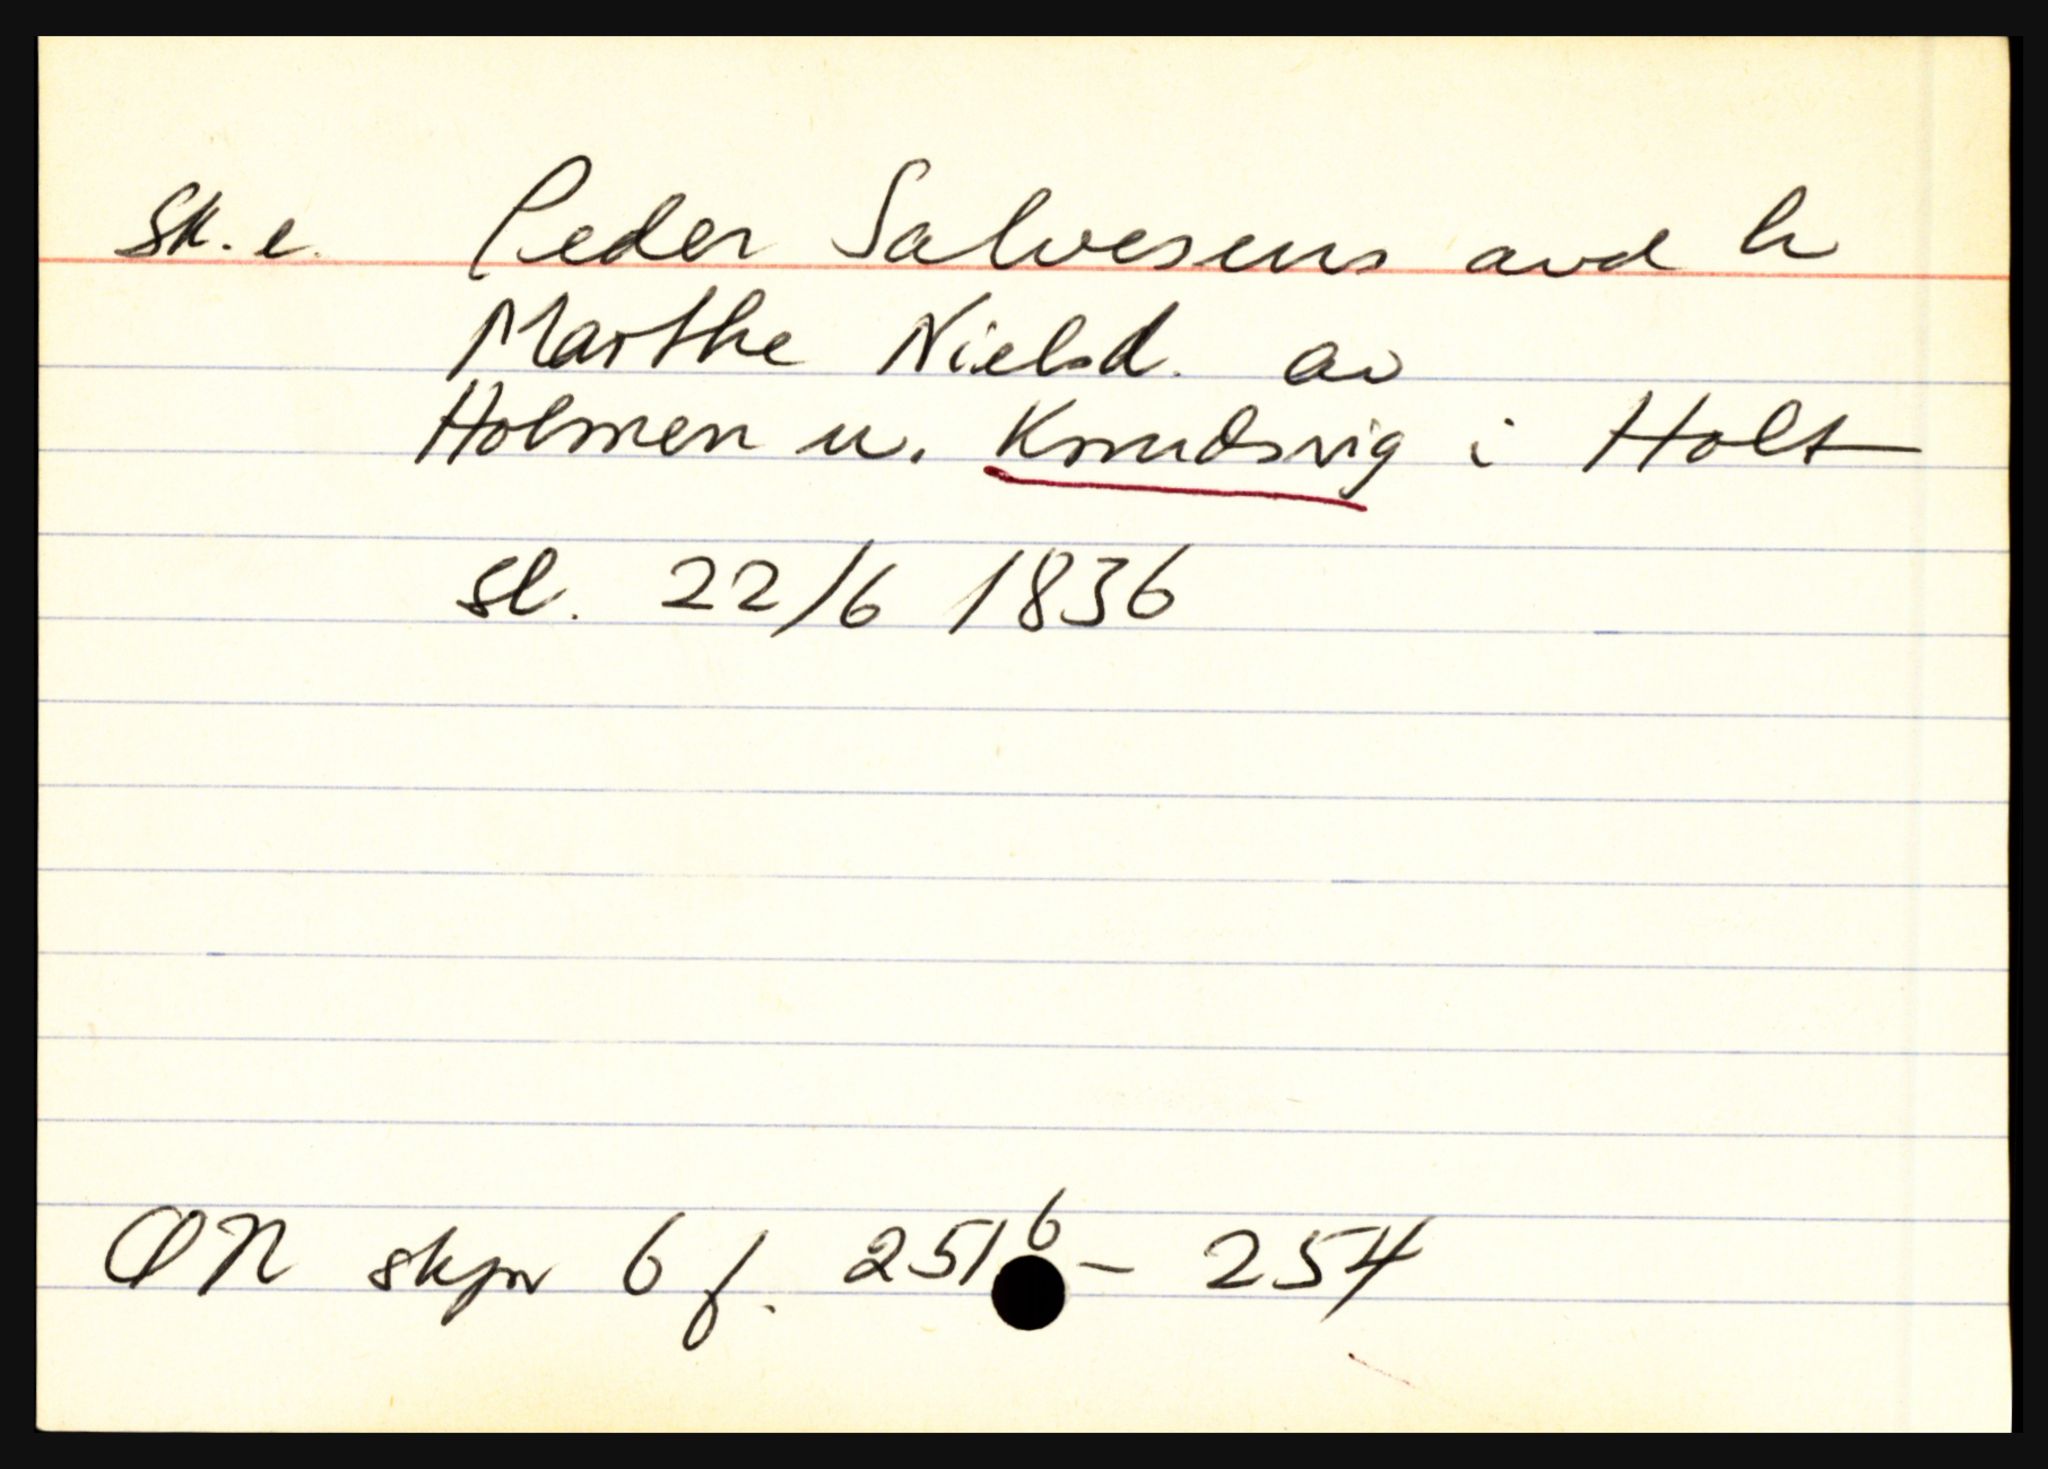 Sk. e. Peder Salvesens avd h
Marthe Nielsd. av
Holmen u. Knudsvig i Holt
sl. 22/6 1836
ØN skpr 6 f. 251b - 254